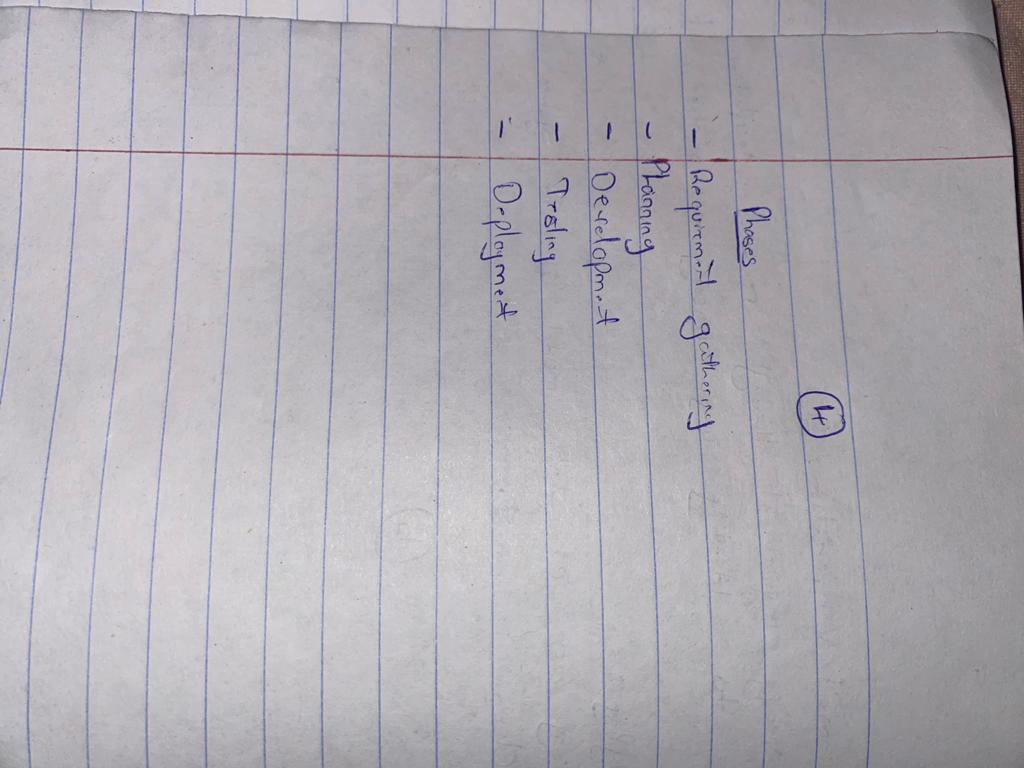 4
Phases
- Requirement gathering
- Planning
- Development
- Testing
- Deployment